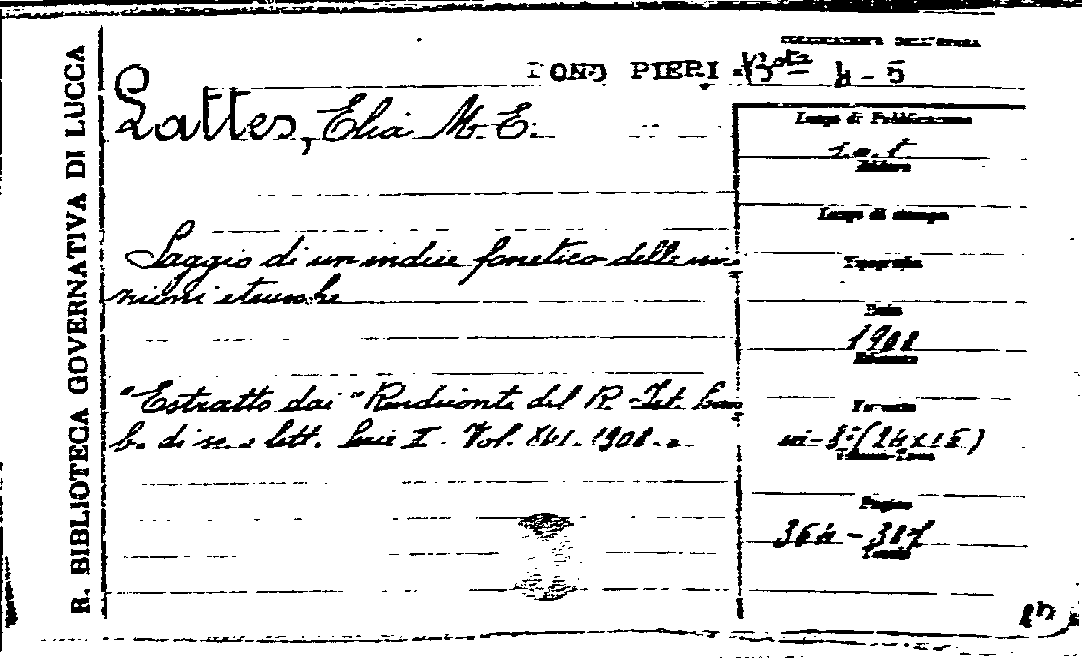 R. BIBLIOTECA GOVERNATIVA DI LUCCA
COLLOCAZIONE DELL'OPERA
FOND PIERI
4-5
Lattes, Elia M. E.
Luogo di Pubblicazione
s.n.t
Editore
Luogo di stampa
Saggio di un indice fonetico delle
etrusche
Tipografia
Data
1908
Formato
in-8°(24x15)
"Estratto dai "Rendiconti del R. Ist. Lom
b. di sc. e lett. Serie II. Vol. XLI. 1908.
Volume-Tomo
Pagine
364 -
Tavole